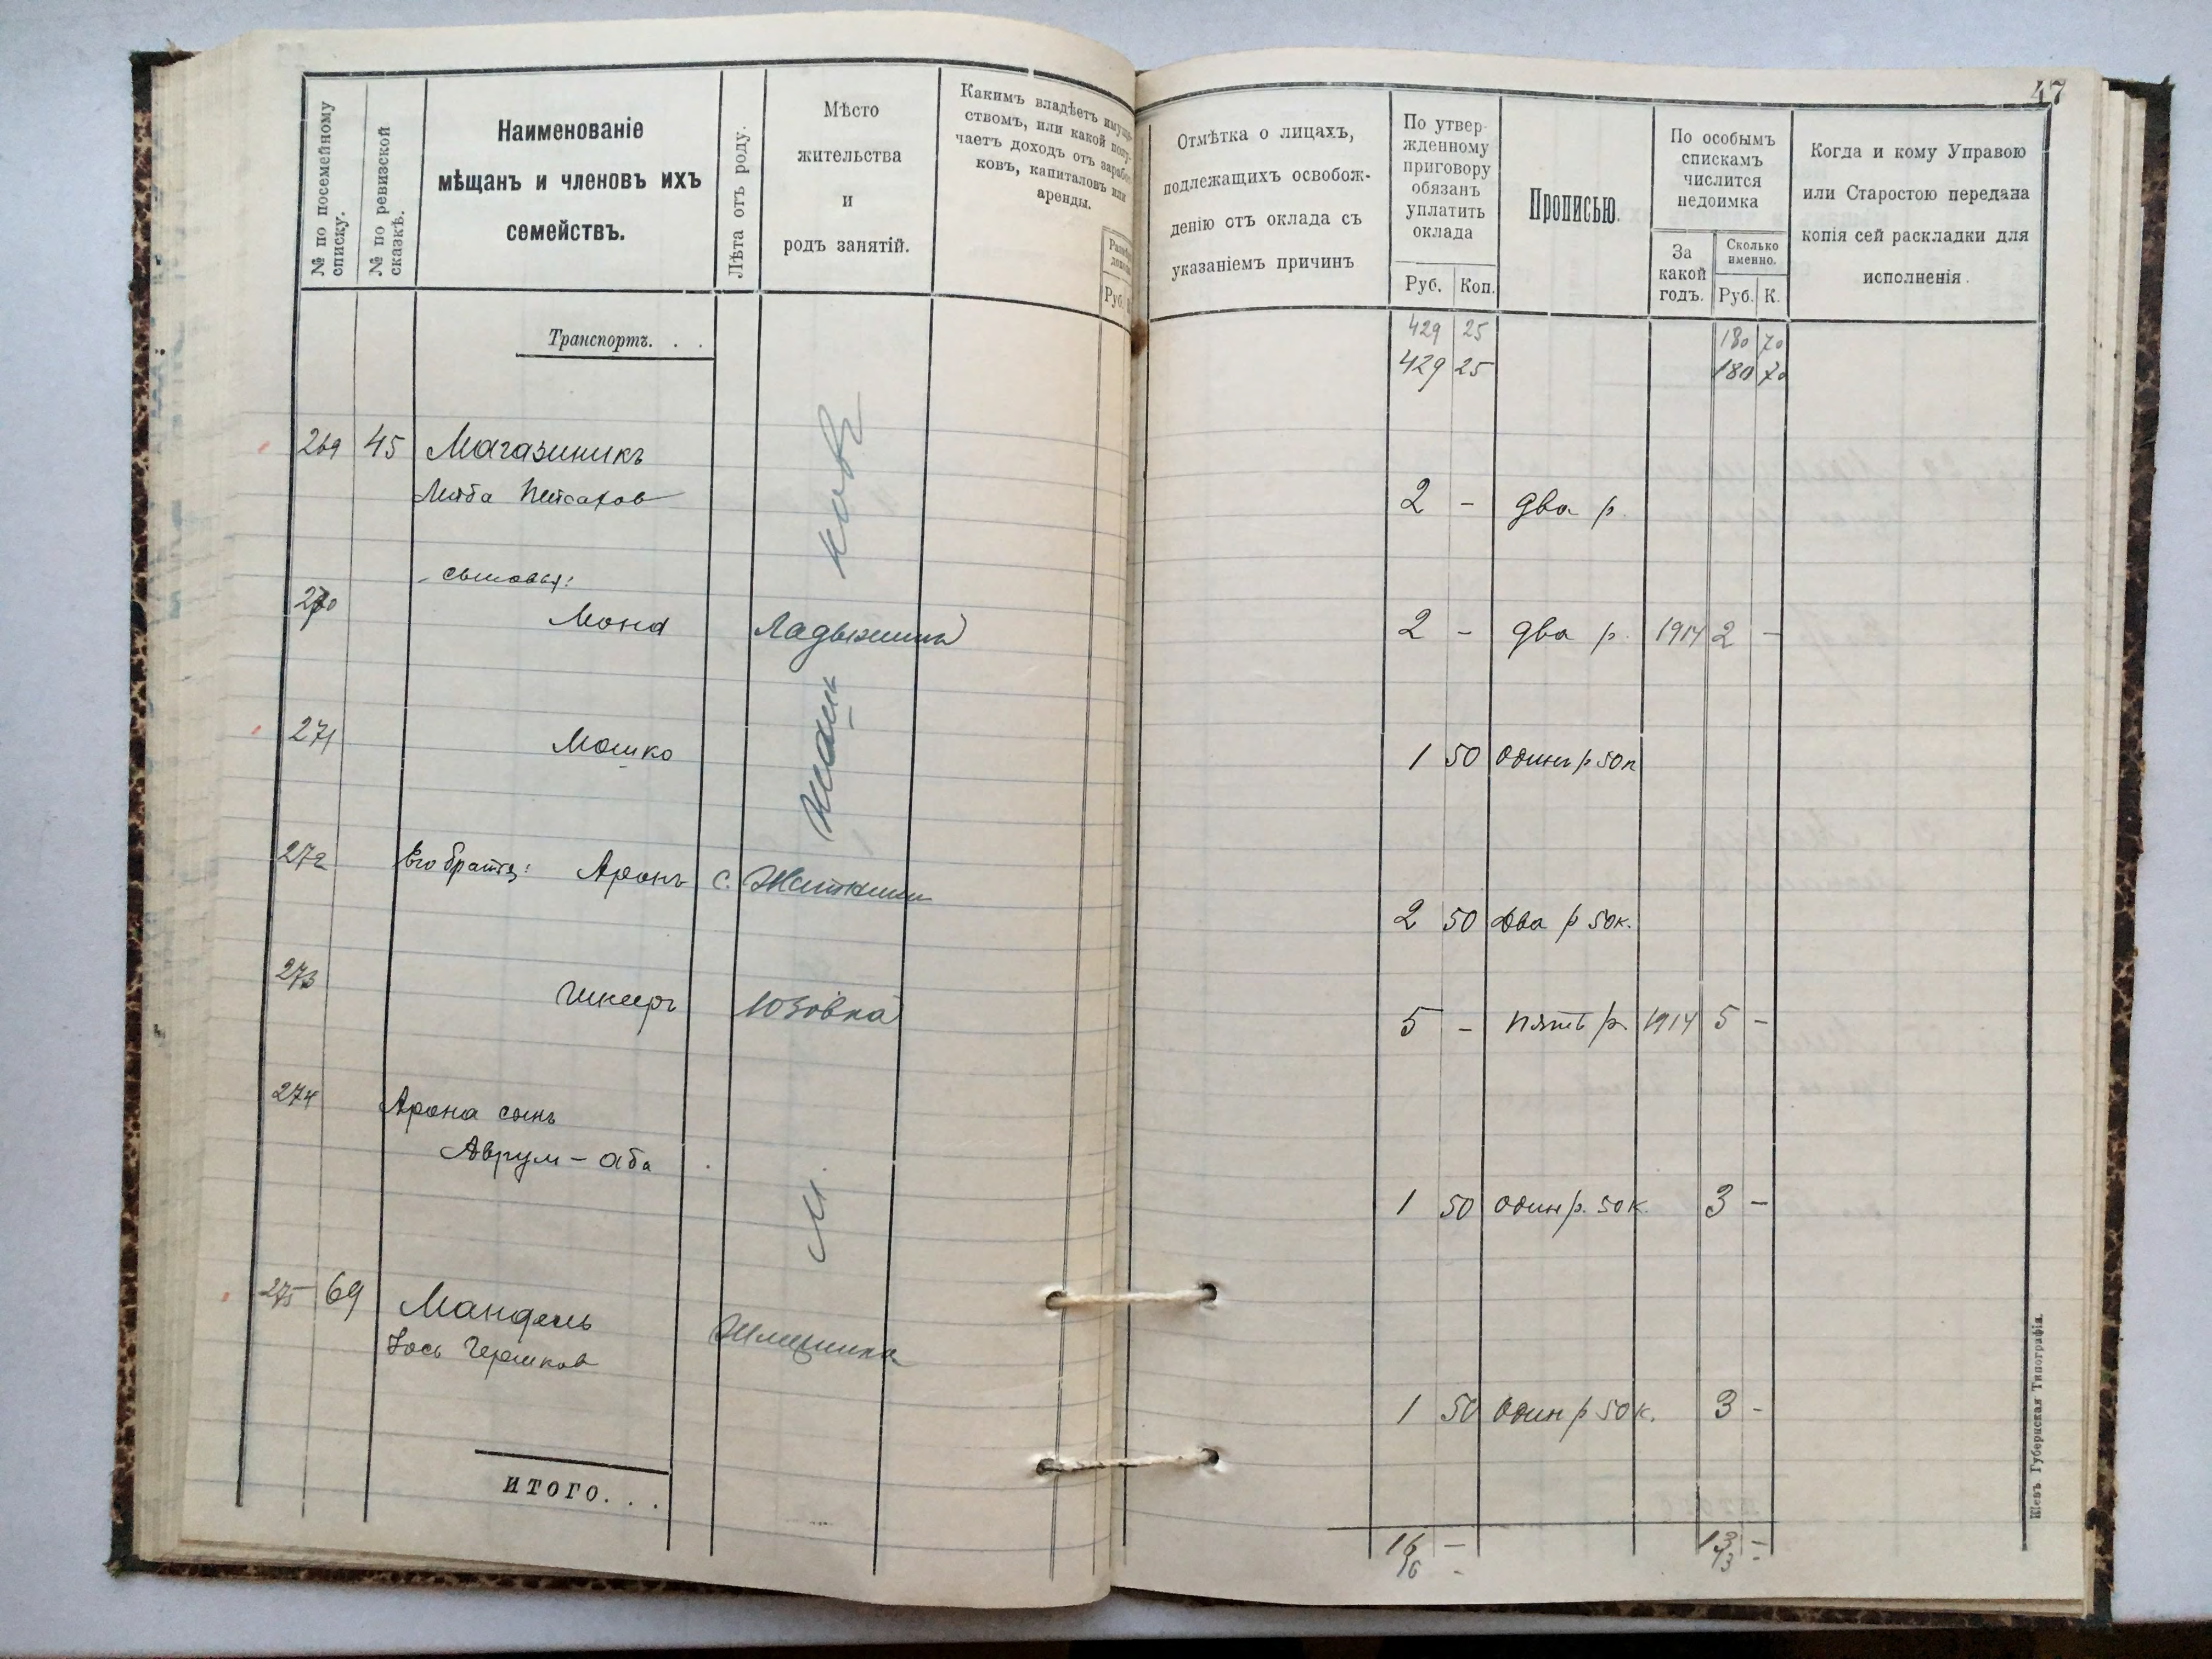 47
№ по посемейному списку.
№ по ревизской сказкѣ.
Наименованіе
мѣщанъ и членовъ ихъ
семействъ.
Лѣта отъ роду.
Мѣсто
жительства
и
родъ занятій.
Какимъ владѣетъ имуще-
ствомъ, или какой полу-
чаетъ доходъ отъ зарабо-
ковъ, капиталовъ или
аренды.
Руб.
Отмѣтка о лицахъ,
подлежащихъ освобож-
денію отъ оклада съ
указаніемъ причинъ
По утвер-
жденному
приговору
обязанъ
уплатить
оклада
Руб. Коп.
Прописью.
По особымъ
спискамъ
числится
недоимка
За
какой
годъ.
Сколько
именно.
Руб. К.
Когда и кому Управою
или Старостою передана
копія сей раскладки для
исполненія.
Транспортъ. . .
429 25 180 70
429 25 180 70
269 45 Магазиникъ
Лейба Пейсахов 2 - два р.
сыновья:
270 Мона Ладыжинъ 2 - два р. 1914 2 -
271 Мошко 1 50 Одинъ р 50 к
272 Его братъ: Аронъ с. 2 50 Два р 50 к.
273 Юзовка 5 - пять р. 1914 5 -
274 Арона сынъ
Аврум-аба 1 50 Один р. 50 к. 3 -
м.
275 69 Мандель
Іось Гершков 1 50 Один р 50 к. 3 -
ИТОГО. . .
16 - 13 -
16 - 13 -
Кіевъ Губернская Типографія.